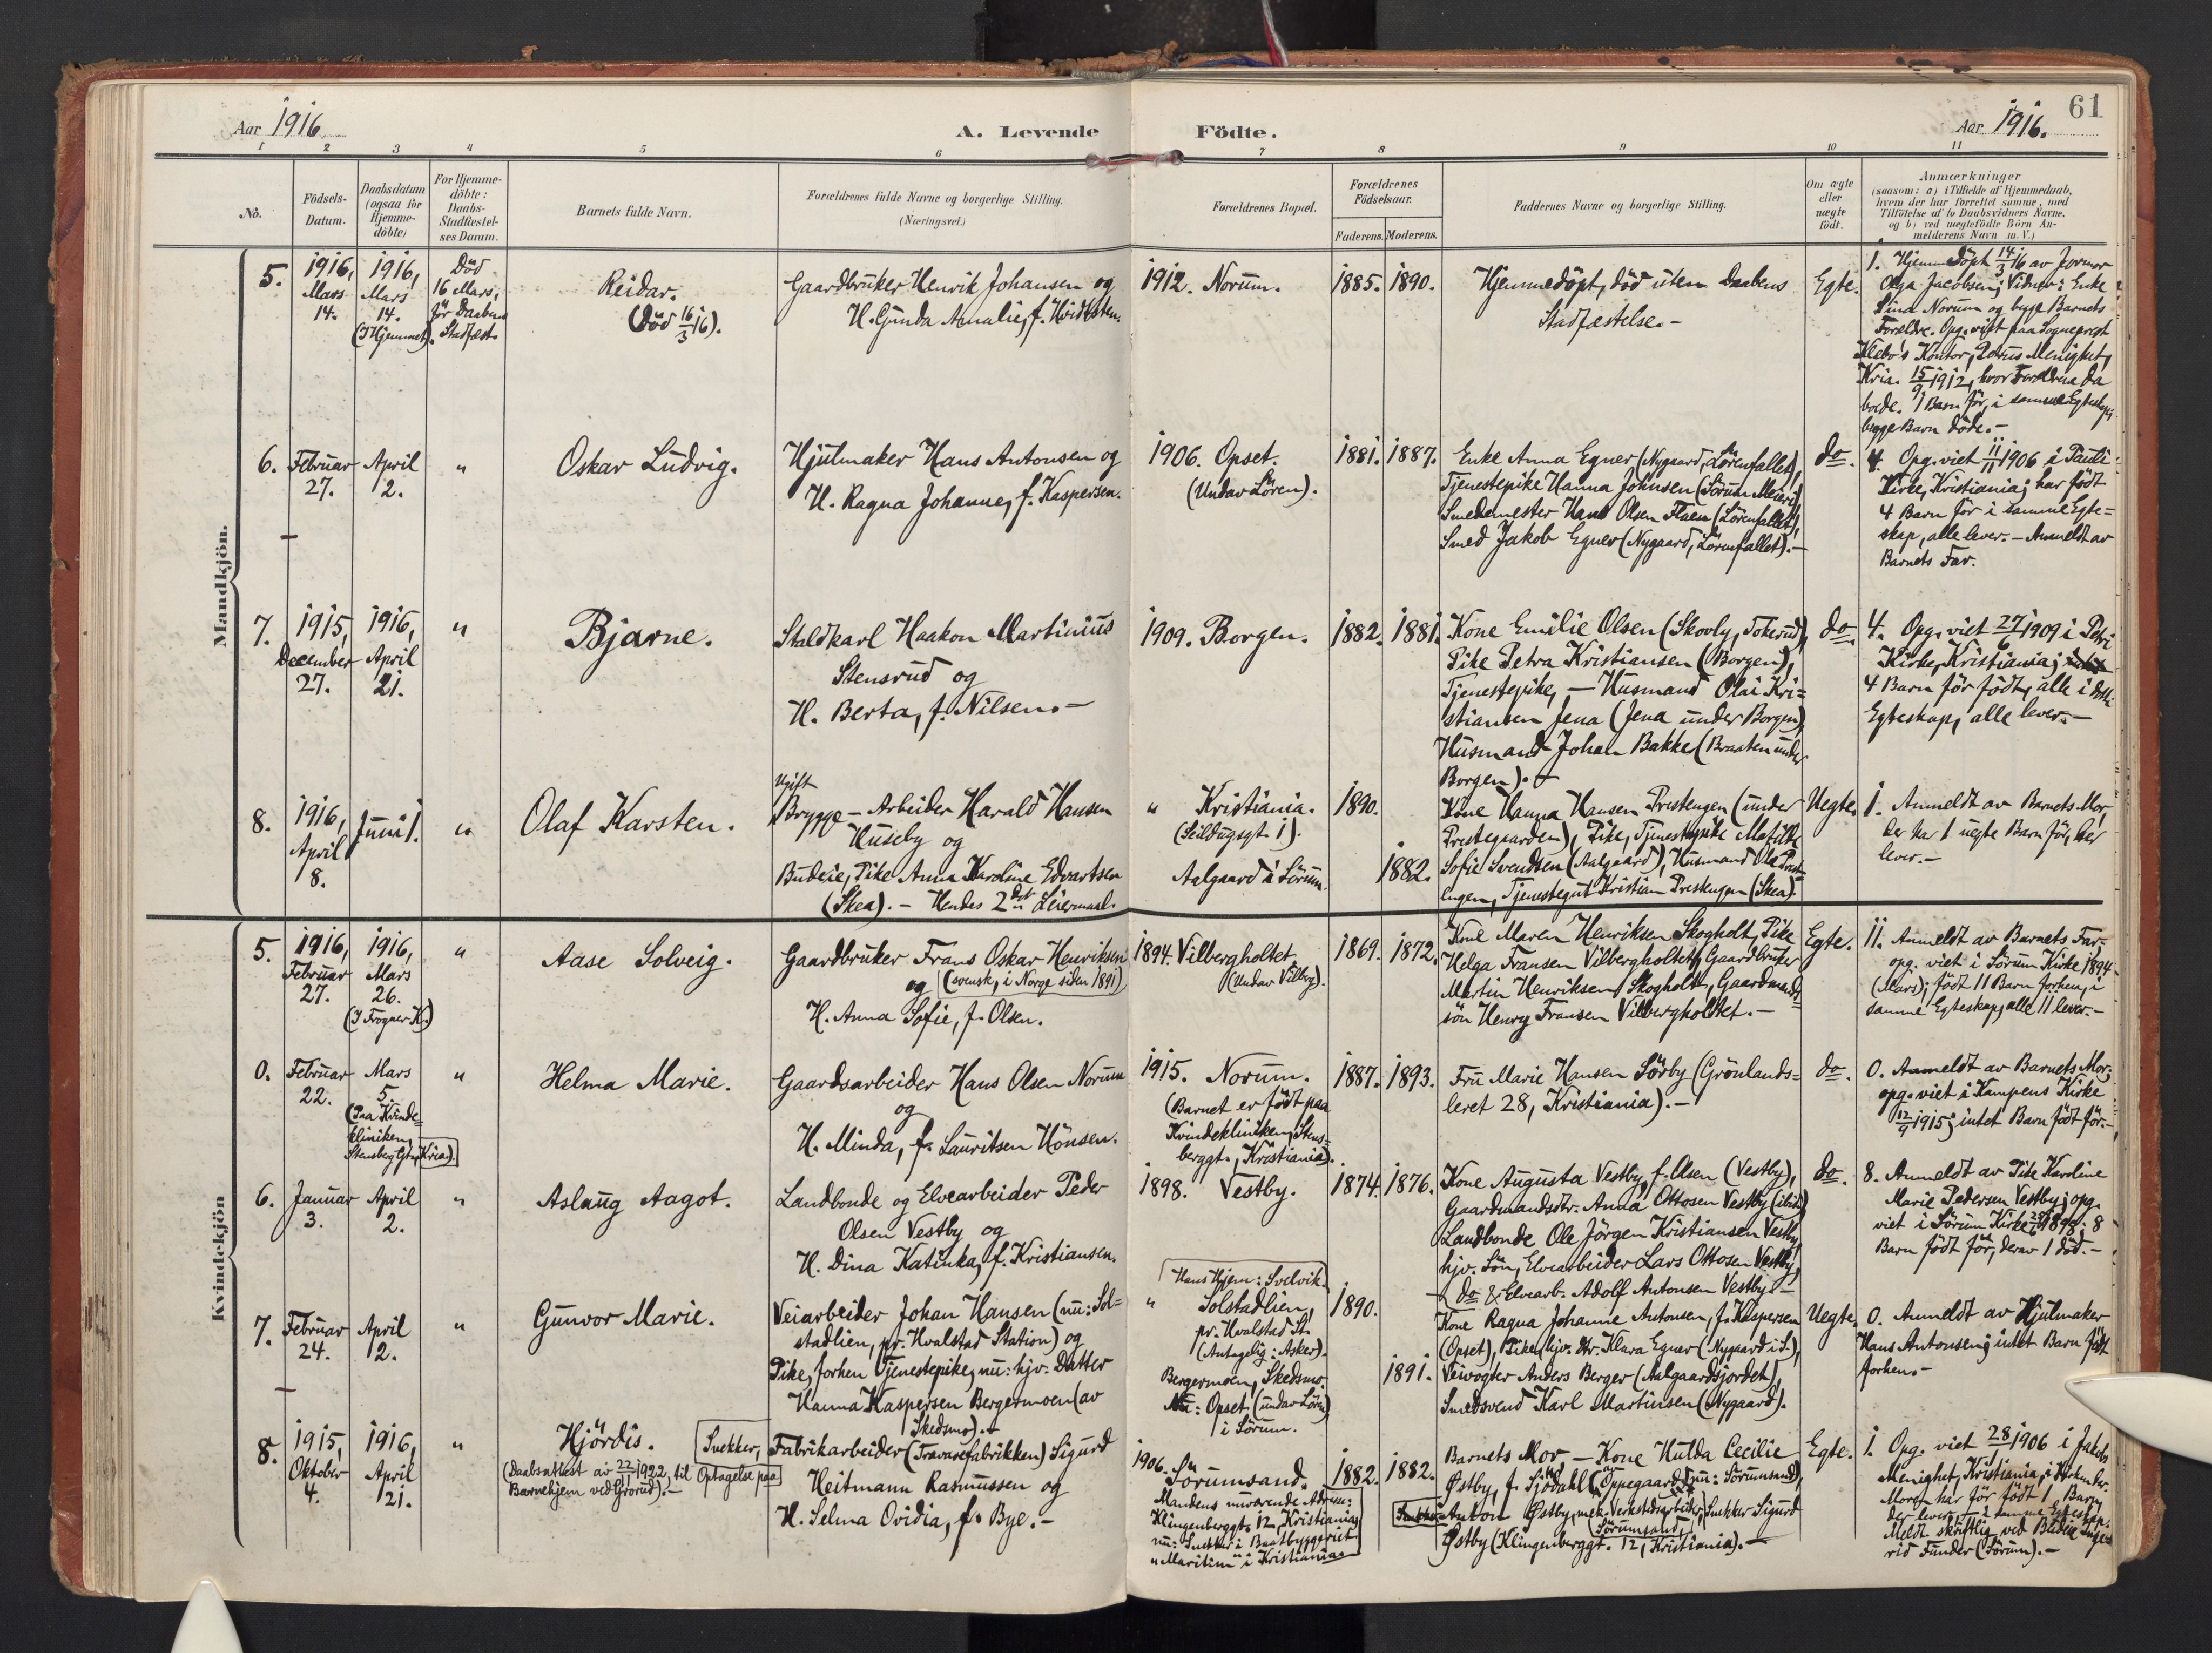 61
Aar 1916
A. Levende Födte.
Aar 1916.
1 2 3 4 5 6 7 8 9 10 11
No.
Födsels-
Datum.
Daabsdatum
(ogsaa for
Hjemme-
döbte)
For Hjemme-
döbte:
Daabs-
Stadfæstel-
ses Datum.
Barnets fulde Navn.
Forældrenes fulde Navne og borgerlige Stilling.
(Næringsvei.)
Forældrenes Bopæl.
Forældrenes
Födselsaar.
Faderens. Moderens.
Faddernes Navne og borgerlige Stilling.
Om ægte
eller
uægte
födt.
Anmærkninger
(saasom: a) i Tilfælde af Hjemmedaab,
hvem der har forrettet samme, med
Tilföielse af to Daabsvidners Navne,
og b) ved uægtefödte Börn An-
melderens Navn m. V.)
Mandkjön.
5.
1916,
Mars
14.
1916,
Mars
14.
(I Hjemmet).
Död
16 Mars,
för Daabens
Stadfæst.
Reidar.
(Död 16/3 16).
Gaardbruker Henrik Johansen og
H. Gunda Amalie, f. Hvidtsten.
1912. Norum.
1885. 1890.
Hjemmedöpt, död uten Daabens
Stadfæstelse.-
Egte.
1. Hjemmedöpt 14/3 16 av Jormor
Olga Jacobsen; Vidner: Enke
Lina Norum og begge Barnets
Forældre. Opg. viet paa Sogneprest
Klebo's Kontor, Petrus Menighet,
Kria. 15/9 1912, hvor Forældrene da
boede. 1 Barn för, i samme Egteskap,
begge Barn döde.-
6.
Februar
27.
April
2.
"
Oskar Ludvig.
Hjulmaker Hans Antonsen og
H. Ragna Johanne, f. Kaspersen.
1906. Opset.
(Undav Lören).
1881. 1887.
Enke Anna Egner (Nygaard, Lörenfallet),
Tjenestepike Hanna Johnsen (Sörum Meieri),
Smedemester Hans Olsen Flaen (Lörenfallet),
Smed Jakob Egner (Nygaard, Lörenfallet).-
do.
4. Opg. viet 11/11 1906 i Pauli
Kirke, Kristiania; har födt
4 Barn för i samme Egte=
skap, alle lever.- Anmeldt av
Barnets Far.
7.
1915,
December
27.
1916,
April
21.
"
Bjarne.
Staldkarl Haakon Martinius
Stensrud og
H. Berta, f. Nilsen.-
1909. Borgen.
1882. 1881.
Kone Emilie Olsen (Skovly, Tokerud),
Pike Petra Kristiansen (Borgen),
Tjenestepike,- Husmand Olai Kri=
stiansen Jena (Jena under Borgen),
Husmand Johan Bakke (Braaten under
Borgen).-
do.
4. Opg. viet 27/6 1909 i Petri
Kirke, Kristiania;
4 Barn för födt, alle i dette
Egteskap, alle lever.-
8.
1916,
April
8.
Juni 1.
"
Olaf Karsten.
Ugift
Brygge-Arbeider Harald Hansen
Huseby og
Budeie, Pike Anna Karoline Edvartsen
(Skea).- Hendes 2det Leiermaal.
" Kristiania.
(Seildugsgt. 1).
Aalgaard i Sörum.
1890.
1882.
Kone Hanna Hansen Prestengen (under
Prestegaarden), Pike, Tjenestepike Matilde
Sofie Svendsen (Aalgaard), Husmand Ole Prest-
engen, Tjenestegut Kristian Prestengen (Skea).
Uegte.
1. Anmeldt av Barnets Mor,
der har 1 uegte Barn för, der
lever.-
Kvindekjön
5.
1916,
Februar
27.
1916,
Mars
26.
(I Frogner K.)
"
Aase Solveig.
Gaardbruker Frans Oskar Henriksen
og (svensk, i Norge siden 1891)
H. Anna Sofie, f. Olsen.
1894. Vilbergholtet.
(Undav Vilberg).
1869. 1872.
Kone Maren Henriksen Skogholt, Pike
Helga Fransen Vilbergholtet, Gaardbruker
Martin Henriksen Skogholt, Gaardmands-
sön Henry Fransen Vilbergholtet.-
Egte.
11. Anmeldt av Barnets Far.
opg. viet i Sörum Kirke 1894
(Mars); födt 11 Barn forhen, i
samme Egteskap, alle 11 lever.-
0.
Februar
22.
Mars
5.
(Paa Kvinde=
kliniken,
Stensberg Gt., Kria).
"
Helma Marie.
Gaardsarbeider Hans Olsen Norum
og
H. Minda, f. Lauritsen Hönsen.
1915. Norum.
(Barnet er födt paa
Kvindekliniken, Stens=
berggt., Kristiania).
1887. 1893.
Fru Marie Hansen Sörby (Grönlands=
leret 28, Kristiania).-
do.
0. Anmeldt av Barnets Mor;
opg. viet i Kampens Kirke
12/9 1915; intet Barn födt för.-
6.
Januar
3.
April
2.
"
Aslaug Aagot.
Landbonde og Elvearbeider Peder
Olsen Vestby og
H. Dina Katinka, f. Kristiansen.
1898. Vestby.
1874. 1876.
Kone Augusta Vestby, f. Olsen (Vestby),
Gaardmandsdtr. Anna Ottosen Vestby (ibid.)
Landbonde Ole Jörgen Kristiansen Vestby,
hjv. Sön, Elvearbeider Lars Ottosen Vestby,
- do & Elvearb. Adolf Antonsen Vestby.-
do.
8. Anmeldt av Pike Karoline
Marie Pedersen Vestby; opg.
viet i Sörum Kirke 1898; 8
Barn födt för, derav 1 död.-
7.
Februar
24.
April
2.
"
Gunvor Marie.
Veiarbeider Johan Hansen (nu: Sol=
stadlien, pr. Hvalstad Station) og
Pike, forhen Tjenestepike, nu: hjv. Datter
Hanna Kaspersen Bergermoen (av
Skedsmo).
Hans Hjem: Svelvik.
" Solstadlien,
pr. Hvalstad St.
(Antagelig: Asker).
Bergermoen, Skedsmo.
Nu: Opset (undav Lören)
i Sörum.
1890.
1891.
Kone Ragna Johanne Antonsen, f. Kaspersen
(Opset), Pike, hjv. Dtr. Klara Egner (Nygaard i S.),
Veivogter Anders Berger (Aalgaardsjordet),
Smedsvend Karl Martinsen (Nygaard).
Uegte.
0. Anmeldt av Hjulmaker
Hans Antonsen; intet Barn födt
forhen.-
8.
1915,
Oktober
4.
1916,
April
21.
"
Hjördis.
(Daabsattest av 22/11 1922, til Optagelse paa
Barnehjem ved Grorud).-
Snekker,
Fabrikarbeider (Trævarefabrikken) Sigurd
Heitmann Rasmussen og
H. Selma Ovidia, f. Bye.-
1906. Sörumsand.
Mandens nuværende Adresse:
Klingenberggt. 12, Kristiania,
nu: Snekker i Baatbyggeriet
"Maritim" i Kristiania.
1882. 1882.
Barnets Mor,- Kone Hulda Cecilie
Østby, f. Sjödahl (Oppegaard, nu: Sörumsand),
Anton Østby, mek. Verkstedarbeider, Snekker Sigurd
(Sörumsand),
Østby (Klingenberggt. 12, Kristiania).-
Egte.
1. Opg. viet 28/ 1906 i Jakobs
Menighet, Kristiania, i
Moren har för födt 1 Barn,
der lever, i samme Egteskap.
Meldt skriftlig ved Budeie Inge=
rid Funder (Sörum).-